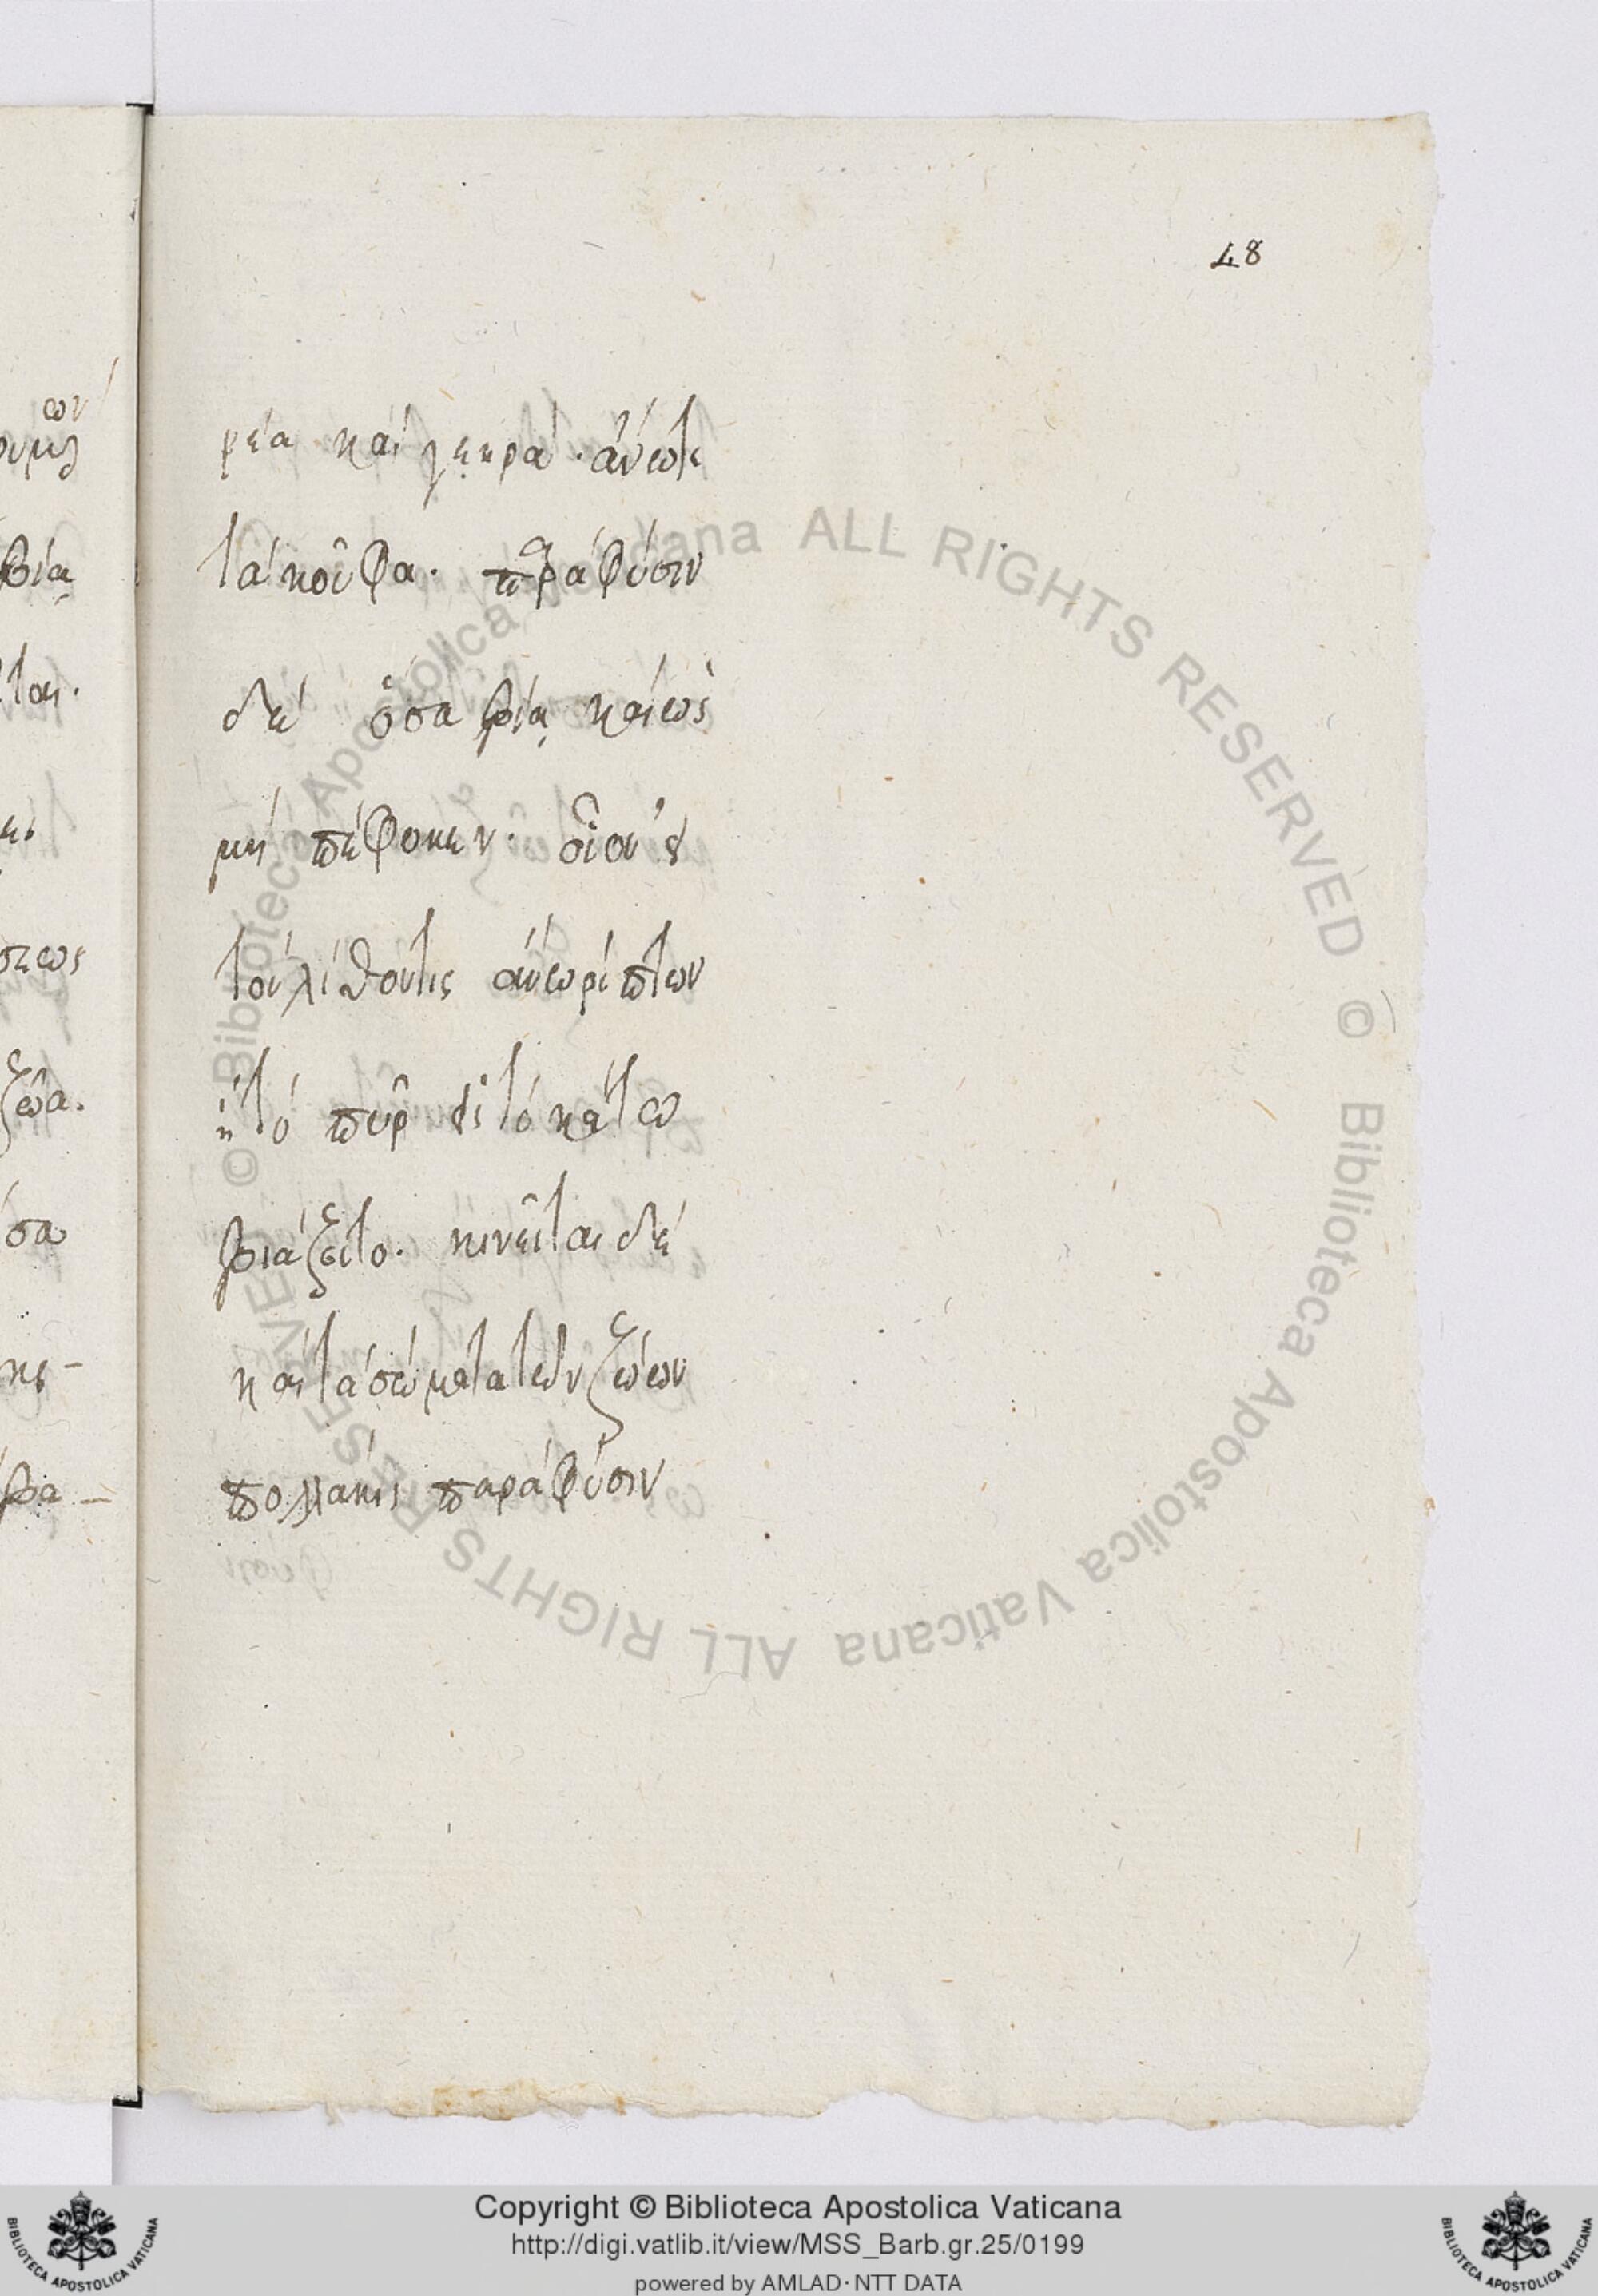 48
ρέα καὶ γεηρά. ἄνω τε
τὰ κοῦφα. παρὰ φύσιν
δὲ ὅσα βίᾳ καὶ ὡς
μὴ πέφυκεν. οἷον εἰ
τὸν λίθον τις ἄνω ρίπτων
ἢ τὸ πῦρ εἰ τὸ κάτω
βιάζειτο. κινεῖται δὲ
καὶ τὰ σώματα τῶν ζώων
πολλάκις παρὰ φύσιν
βίᾳ
ται.
σεως
ζῶα.
σα
βα-
© Biblioteca Apostolica Vaticana ALL RIGHTS RESERVED © Biblioteca Apostolica Vaticana ALL RIGHTS RESERVED
Copyright © Biblioteca Apostolica Vaticana
http://digi.vatlib.it/view/MSS_Barb.gr.25/0199
powered by AMLAD·NTT DATA
BIBLIOTECA APOSTOLICA VATICANA
BIBLIOTECA APOSTOLICA VATICANA